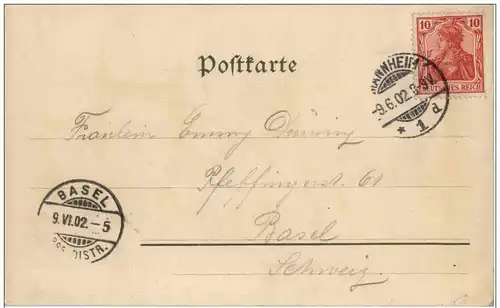 10 10
DEUTSCHES REICH
Postkarte
MANNHEIM
-9.6.02.
* 1 d
Fräulein Emmy
Pfeffingerstr. 61
BASEL
9.VI.02.-5
DISTR.
Basel
Schweiz.